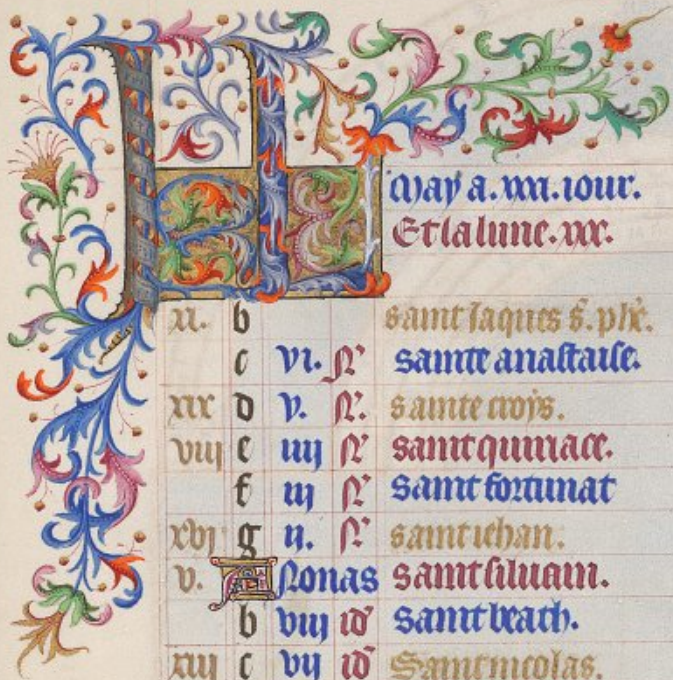 KL May a .xxxi. iour.
Et la lune .xxx.
xi. b saint Jaques s. phe.
c vi. N sainte anastaise.
xix d v. N. sainte croys.
viii e iiii N saint quiriace.
f iii N saint fortunat
xvi g ii. N saint iehan.
v. A Nonas saint siluain.
b viii id saint beath.
xiii c vii id Saint nicolas.